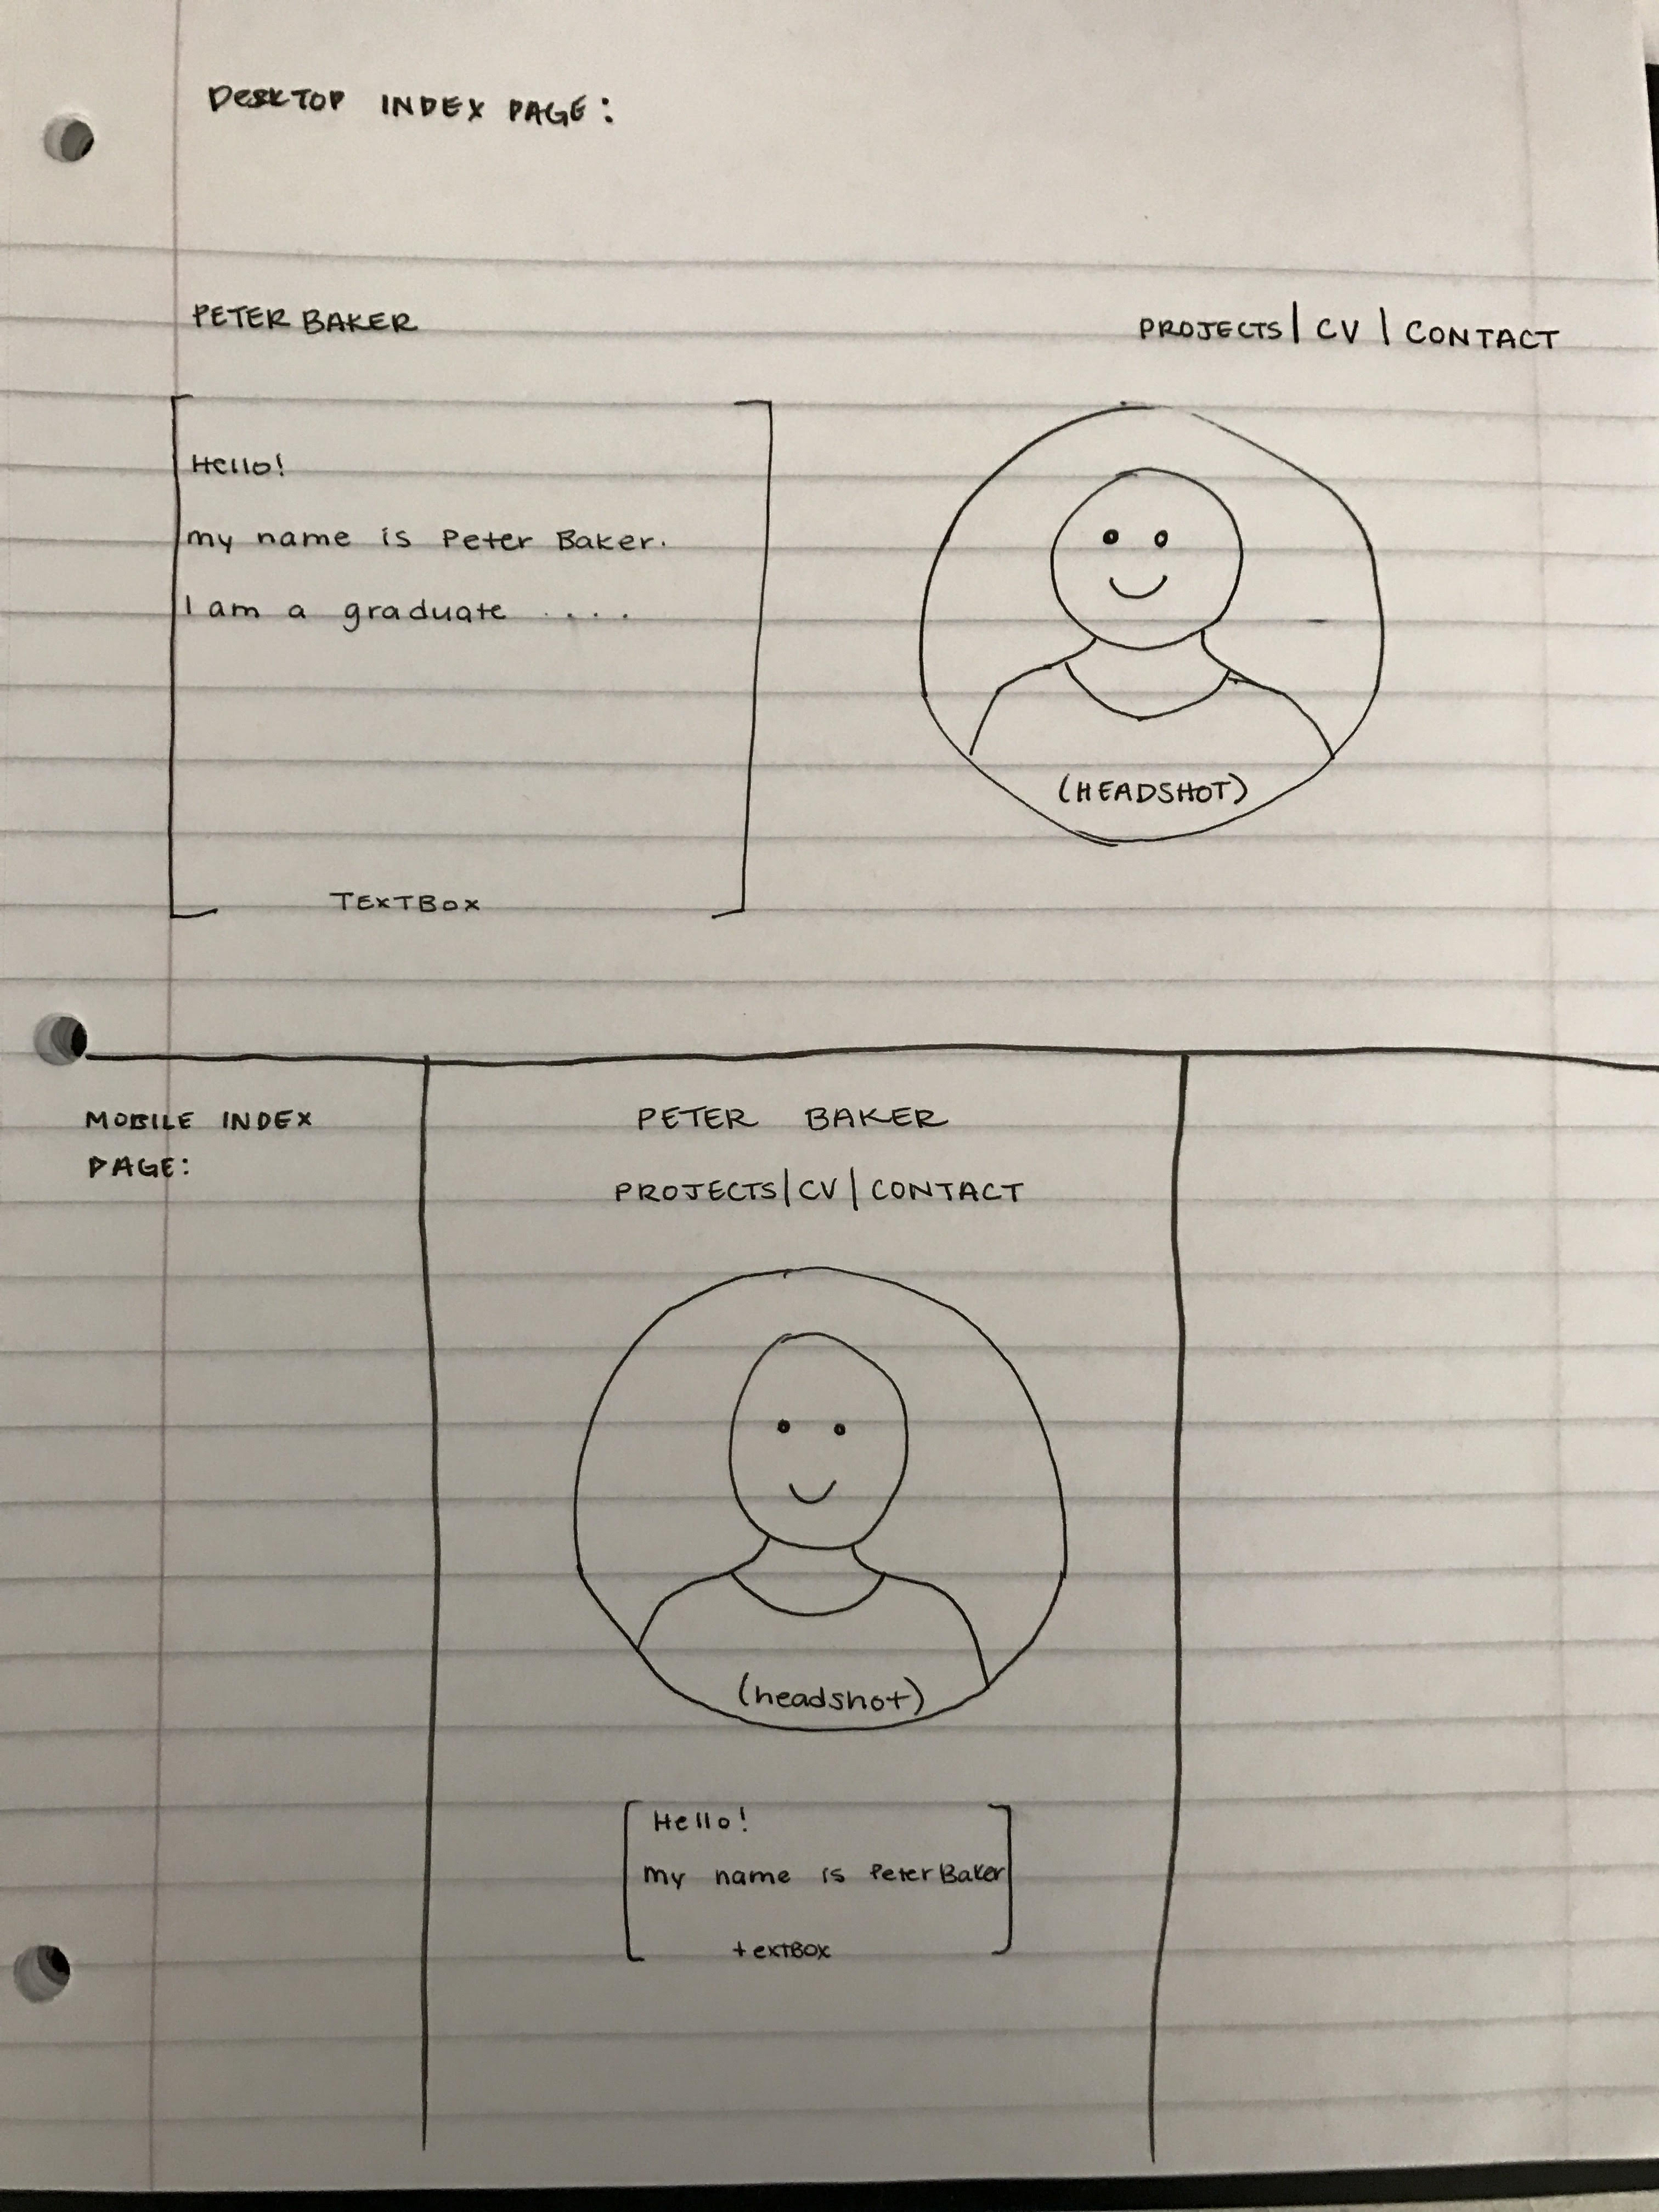 DESKTOP INDEX PAGE:
PETER BAKER
PROJECTS | CV | CONTACT
Hello!
my name is Peter Baker.
I am a graduate ....
TEXTBOX
(HEADSHOT)
MOBILE INDEX
PAGE:
PETER BAKER
PROJECTS | CV | CONTACT
(headshot)
Hello!
my name is Peter Baker
textBox